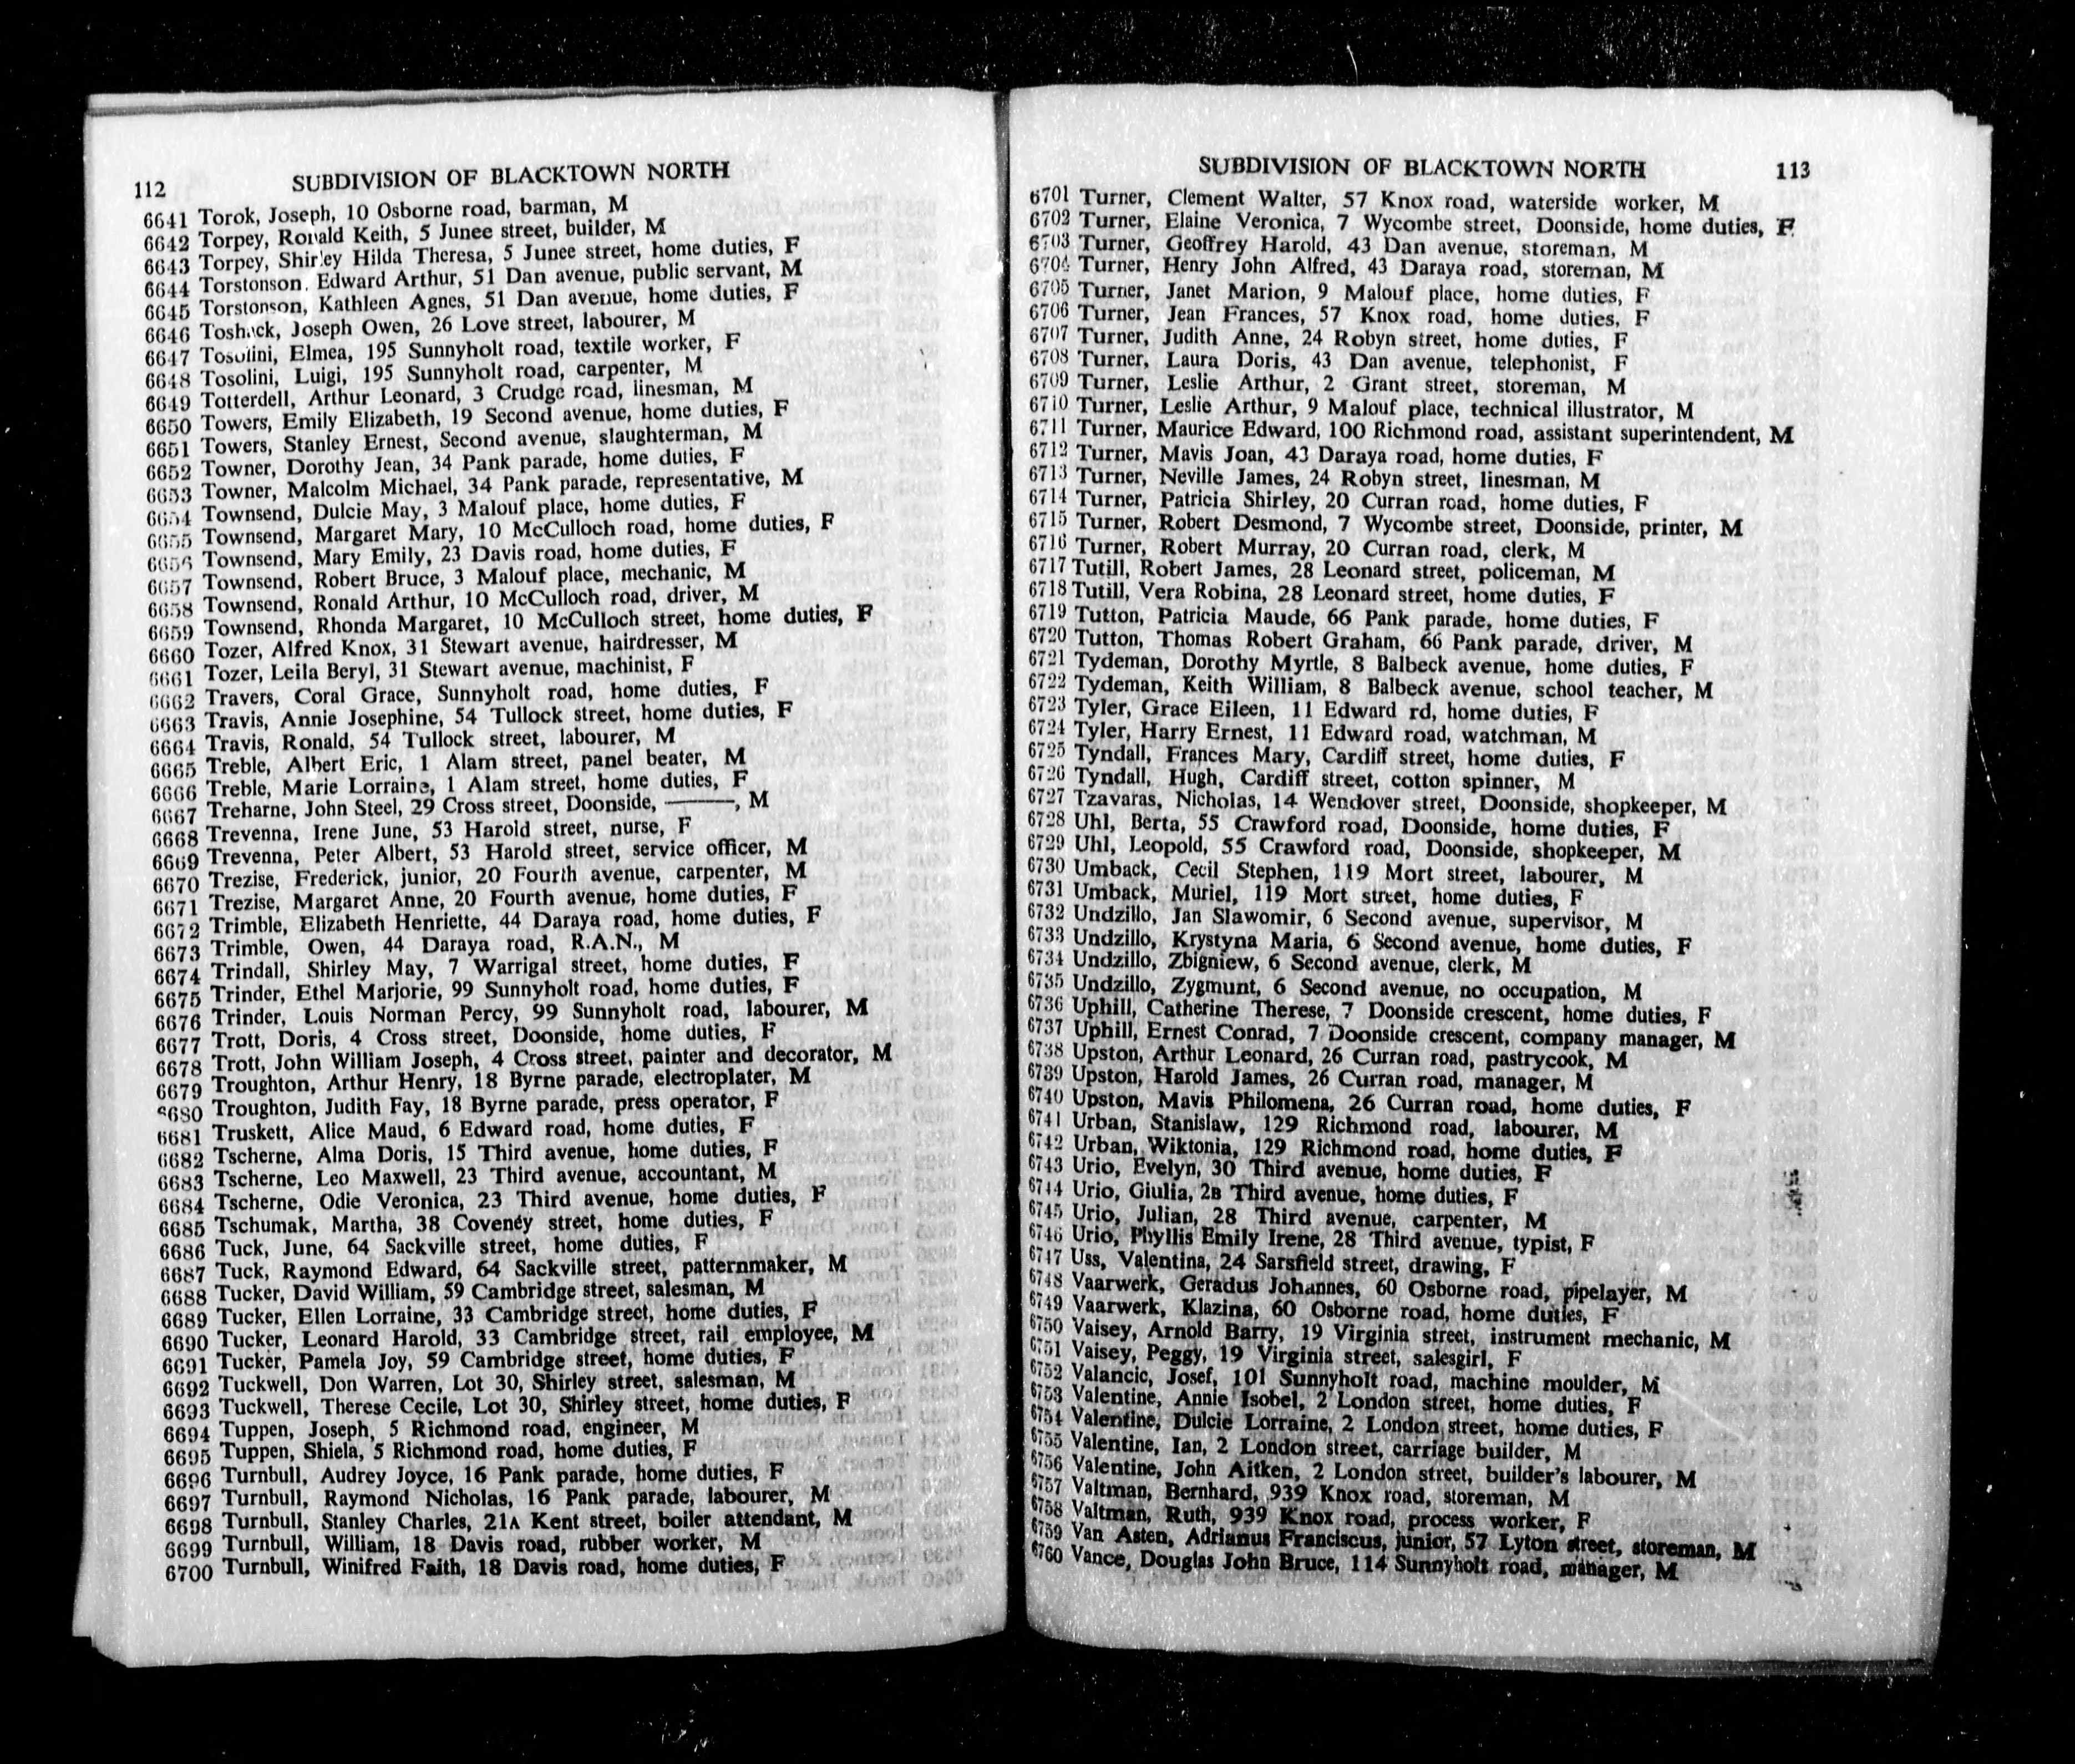 112 SUBDIVISION OF BLACKTOWN NORTH
6641 Torok, Joseph, 10 Osborne road, barman, M
6642 Torpey, Ronald Keith, 5 Junee street, builder, M
6643 Torpey, Shirley Hilda Theresa, 5 Junee street, home duties, F
6644 Torstonson, Edward Arthur, 51 Dan avenue, public servant, M
6645 Torstonson, Kathleen Agnes, 51 Dan avenue, home duties, F
6646 Toshack, Joseph Owen, 26 Love street, labourer, M
6647 Tosolini, Elmea, 195 Sunnyholt road, textile worker, F
6648 Tosolini, Luigi, 195 Sunnyholt road, carpenter, M
6649 Totterdell, Arthur Leonard, 3 Crudge road, linesman, M
6650 Towers, Emily Elizabeth, 19 Second avenue, home duties, F
6651 Towers, Stanley Ernest, Second avenue, slaughterman, M
6652 Towner, Dorothy Jean, 34 Pank parade, home duties, F
6653 Towner, Malcolm Michael, 34 Pank parade, representative, M
6654 Townsend, Dulcie May, 3 Malouf place, home duties, F
6655 Townsend, Margaret Mary, 10 McCulloch road, home duties, F
6656 Townsend, Mary Emily, 23 Davis road, home duties, F
6657 Townsend, Robert Bruce, 3 Malouf place, mechanic, M
6658 Townsend, Ronald Arthur, 10 McCulloch road, driver, M
6659 Townsend, Rhonda Margaret, 10 McCulloch street, home duties, F
6660 Tozer, Alfred Knox, 31 Stewart avenue, hairdresser, M
6661 Tozer, Leila Beryl, 31 Stewart avenue, machinist, F
6662 Travers, Coral Grace, Sunnyholt road, home duties, F
6663 Travis, Annie Josephine, 54 Tullock street, home duties, F
6664 Travis, Ronald, 54 Tullock street, labourer, M
6665 Treble, Albert Eric, 1 Alam street, panel beater, M
6666 Treble, Marie Lorraine, 1 Alam street, home duties, F
6667 Treharne, John Steel, 29 Cross street, Doonside, ———, M
6668 Trevenna, Irene June, 53 Harold street, nurse, F
6669 Trevenna, Peter Albert, 53 Harold street, service officer, M
6670 Trezise, Frederick, junior, 20 Fourth avenue, carpenter, M
6671 Trezise, Margaret Anne, 20 Fourth avenue, home duties, F
6672 Trimble, Elizabeth Henriette, 44 Daraya road, home duties, F
6673 Trimble, Owen, 44 Daraya road, R.A.N., M
6674 Trindall, Shirley May, 7 Warrigal street, home duties, F
6675 Trinder, Ethel Marjorie, 99 Sunnyholt road, home duties, F
6676 Trinder, Louis Norman Percy, 99 Sunnyholt road, labourer, M
6677 Trott, Doris, 4 Cross street, Doonside, home duties, F
6678 Trott, John William Joseph, 4 Cross street, painter and decorator, M
6679 Troughton, Arthur Henry, 18 Byrne parade, electroplater, M
6680 Troughton, Judith Fay, 18 Byrne parade, press operator, F
6681 Truskett, Alice Maud, 6 Edward road, home duties, F
6682 Tscherne, Alma Doris, 15 Third avenue, home duties, F
6683 Tscherne, Leo Maxwell, 23 Third avenue, accountant, M
6684 Tscherne, Odie Veronica, 23 Third avenue, home duties, F
6685 Tschumak, Martha, 38 Coveney street, home duties, F
6686 Tuck, June, 64 Sackville street, home duties, F
6687 Tuck, Raymond Edward, 64 Sackville street, patternmaker, M
6688 Tucker, David William, 59 Cambridge street, salesman, M
6689 Tucker, Ellen Lorraine, 33 Cambridge street, home duties, F
6690 Tucker, Leonard Harold, 33 Cambridge street, rail employee, M
6691 Tucker, Pamela Joy, 59 Cambridge street, home duties, F
6692 Tuckwell, Don Warren, Lot 30, Shirley street, salesman, M
6693 Tuckwell, Therese Cecile, Lot 30, Shirley street, home duties, F
6694 Tuppen, Joseph, 5 Richmond road, engineer, M
6695 Tuppen, Shiela, 5 Richmond road, home duties, F
6696 Turnbull, Audrey Joyce, 16 Pank parade, home duties, F
6697 Turnbull, Raymond Nicholas, 16 Pank parade, labourer, M
6698 Turnbull, Stanley Charles, 21A Kent street, boiler attendant, M
6699 Turnbull, William, 18 Davis road, rubber worker, M
6700 Turnbull, Winifred Faith, 18 Davis road, home duties, F
SUBDIVISION OF BLACKTOWN NORTH 113
6701 Turner, Clement Walter, 57 Knox road, waterside worker, M
6702 Turner, Elaine Veronica, 7 Wycombe street, Doonside, home duties, F
6703 Turner, Geoffrey Harold, 43 Dan avenue, storeman, M
6704 Turner, Henry John Alfred, 43 Daraya road, storeman, M
6705 Turner, Janet Marion, 9 Malouf place, home duties, F
6706 Turner, Jean Frances, 57 Knox road, home duties, F
6707 Turner, Judith Anne, 24 Robyn street, home duties, F
6708 Turner, Laura Doris, 43 Dan avenue, telephonist, F
6709 Turner, Leslie Arthur, 2 Grant street, storeman, M
6710 Turner, Leslie Arthur, 9 Malouf place, technical illustrator, M
6711 Turner, Maurice Edward, 100 Richmond road, assistant superintendent, M
6712 Turner, Mavis Joan, 43 Daraya road, home duties, F
6713 Turner, Neville James, 24 Robyn street, linesman, M
6714 Turner, Patricia Shirley, 20 Curran road, home duties, F
6715 Turner, Robert Desmond, 7 Wycombe street, Doonside, printer, M
6716 Turner, Robert Murray, 20 Curran road, clerk, M
6717 Tutill, Robert James, 28 Leonard street, policeman, M
6718 Tutill, Vera Robina, 28 Leonard street, home duties, F
6719 Tutton, Patricia Maude, 66 Pank parade, home duties, F
6720 Tutton, Thomas Robert Graham, 66 Pank parade, driver, M
6721 Tydeman, Dorothy Myrtle, 8 Balbeck avenue, home duties, F
6722 Tydeman, Keith William, 8 Balbeck avenue, school teacher, M
6723 Tyler, Grace Eileen, 11 Edward rd, home duties, F
6724 Tyler, Harry Ernest, 11 Edward road, watchman, M
6725 Tyndall, Frances Mary, Cardiff street, home duties, F
6726 Tyndall, Hugh, Cardiff street, cotton spinner, M
6727 Tzavaras, Nicholas, 14 Wendover street, Doonside, shopkeeper, M
6728 Uhl, Berta, 55 Crawford road, Doonside, home duties, F
6729 Uhl, Leopold, 55 Crawford road, Doonside, shopkeeper, M
6730 Umback, Cecil Stephen, 119 Mort street, labourer, M
6731 Umback, Muriel, 119 Mort street, home duties, F
6732 Undzillo, Jan Slawomir, 6 Second avenue, supervisor, M
6733 Undzillo, Krystyna Maria, 6 Second avenue, home duties, F
6734 Undzillo, Zbigniew, 6 Second avenue, clerk, M
6735 Undzillo, Zygmunt, 6 Second avenue, no occupation, M
6736 Uphill, Catherine Therese, 7 Doonside crescent, home duties, F
6737 Uphill, Ernest Conrad, 7 Doonside crescent, company manager, M
6738 Upston, Arthur Leonard, 26 Curran road, pastrycook, M
6739 Upston, Harold James, 26 Curran road, manager, M
6740 Upston, Mavis Philomena, 26 Curran road, home duties, F
6741 Urban, Stanislaw, 129 Richmond road, labourer, M
6742 Urban, Wiktonia, 129 Richmond road, home duties, F
6743 Urio, Evelyn, 30 Third avenue, home duties, F
6744 Urio, Giulia, 2B Third avenue, home duties, F
6745 Urio, Julian, 28 Third avenue, carpenter, M
6746 Urio, Phyllis Emily Irene, 28 Third avenue, typist, F
6747 Uss, Valentina, 24 Sarsfield street, drawing, F
6748 Vaarwerk, Geradus Johannes, 60 Osborne road, pipelayer, M
6749 Vaarwerk, Klazina, 60 Osborne road, home duties, F
6750 Vaisey, Arnold Barry, 19 Virginia street, instrument mechanic, M
6751 Vaisey, Peggy, 19 Virginia street, salesgirl, F
6752 Valancic, Josef, 101 Sunnyholt road, machine moulder, M
6753 Valentine, Annie Isobel, 2 London street, home duties, F
6754 Valentine, Dulcie Lorraine, 2 London street, home duties, F
6755 Valentine, Ian, 2 London street, carriage builder, M
6756 Valentine, John Aitken, 2 London street, builder's labourer, M
6757 Valtman, Bernhard, 939 Knox road, storeman, M
6758 Valtman, Ruth, 939 Knox road, process worker, F
6759 Van Asten, Adrianus Franciscus, junior, 57 Lyton street, storeman, M
6760 Vance, Douglas John Bruce, 114 Sunnyholt road, manager, M